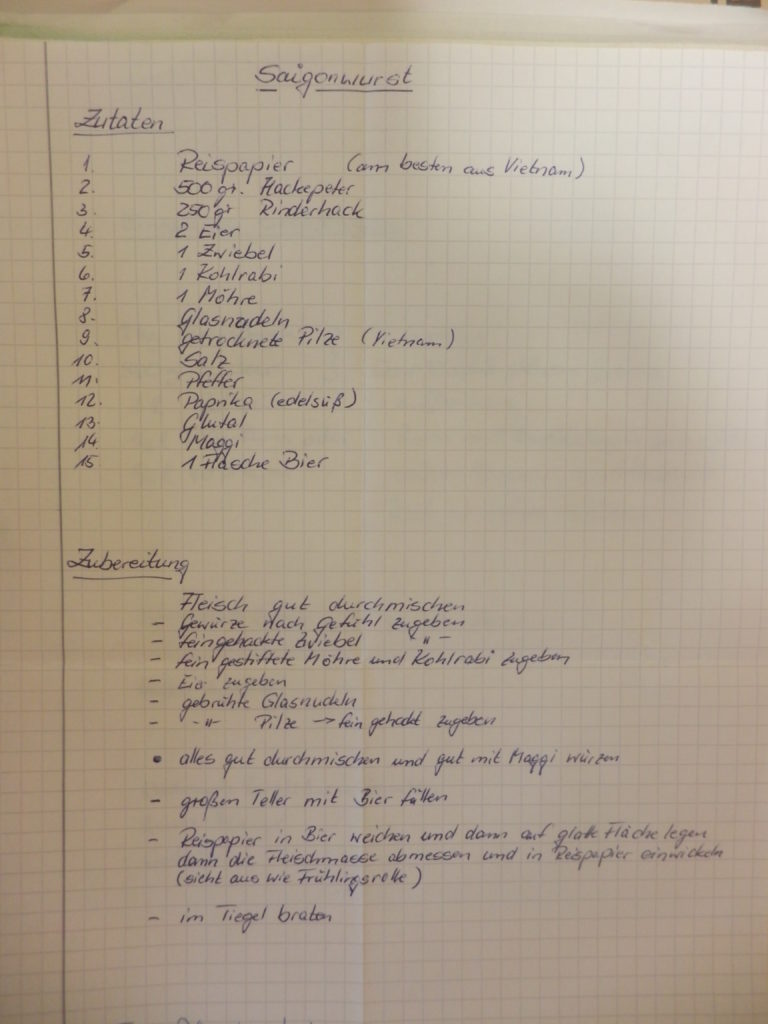 Saigonwurst
Zutaten
1. Reispapier (am besten aus Vietnam)
2. 500 gr. Hackepeter
3. 250 gr Rinderhack
4. 2 Eier
5. 1 Zwiebel
6. 1 Kohlrabi
7. 1 Möhre
8. Glasnudeln
9. getrocknete Pilze (Vietnam)
10. Salz
11. Pfeffer
12. Paprika (edelsüß)
13. Glutal
14. Maggi
15 1 Flasche Bier
Zubereitung
Fleisch gut durchmischen
- Gewürze nach Gefühl zugeben
- feingehackte Zwiebel -"-
- fein gestiftete Möhre und Kohlrabi zugeben
- Eier zugeben
- gebrühte Glasnudeln
- -"- Pilze → fein gehackt zugeben
• alles gut durchmischen und gut mit Maggi würzen
- großen Teller mit Bier füllen
- Reispapier in Bier weichen und dann auf glatte Fläche legen
dann die Fleischmasse abmessen und in Reispapier einwickeln
(sieht aus wie Frühlingsrolle)
- im Tiegel braten